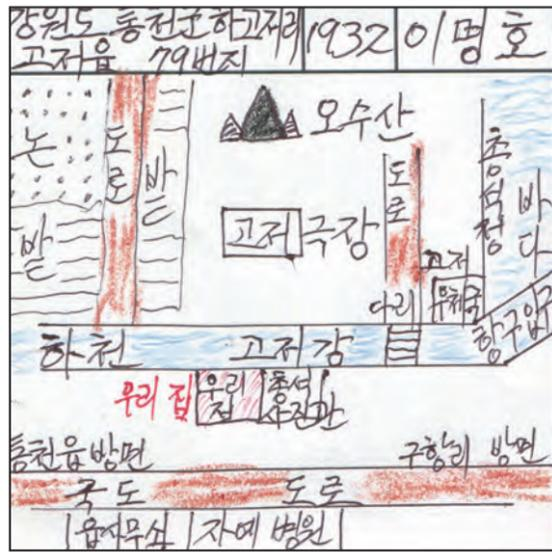 강원도 통천군 하고저리
고저읍 79번지
1932
이명호
오수산
논
도로
밭
도로
총석정
바다
밭
고저극장
고저
우체국
다리
항구입구
하천 고저강
우리 집
우리
집
총석
사진관
통천읍 방면
구항리 방면
국도 도로
읍사무실
자예 병원